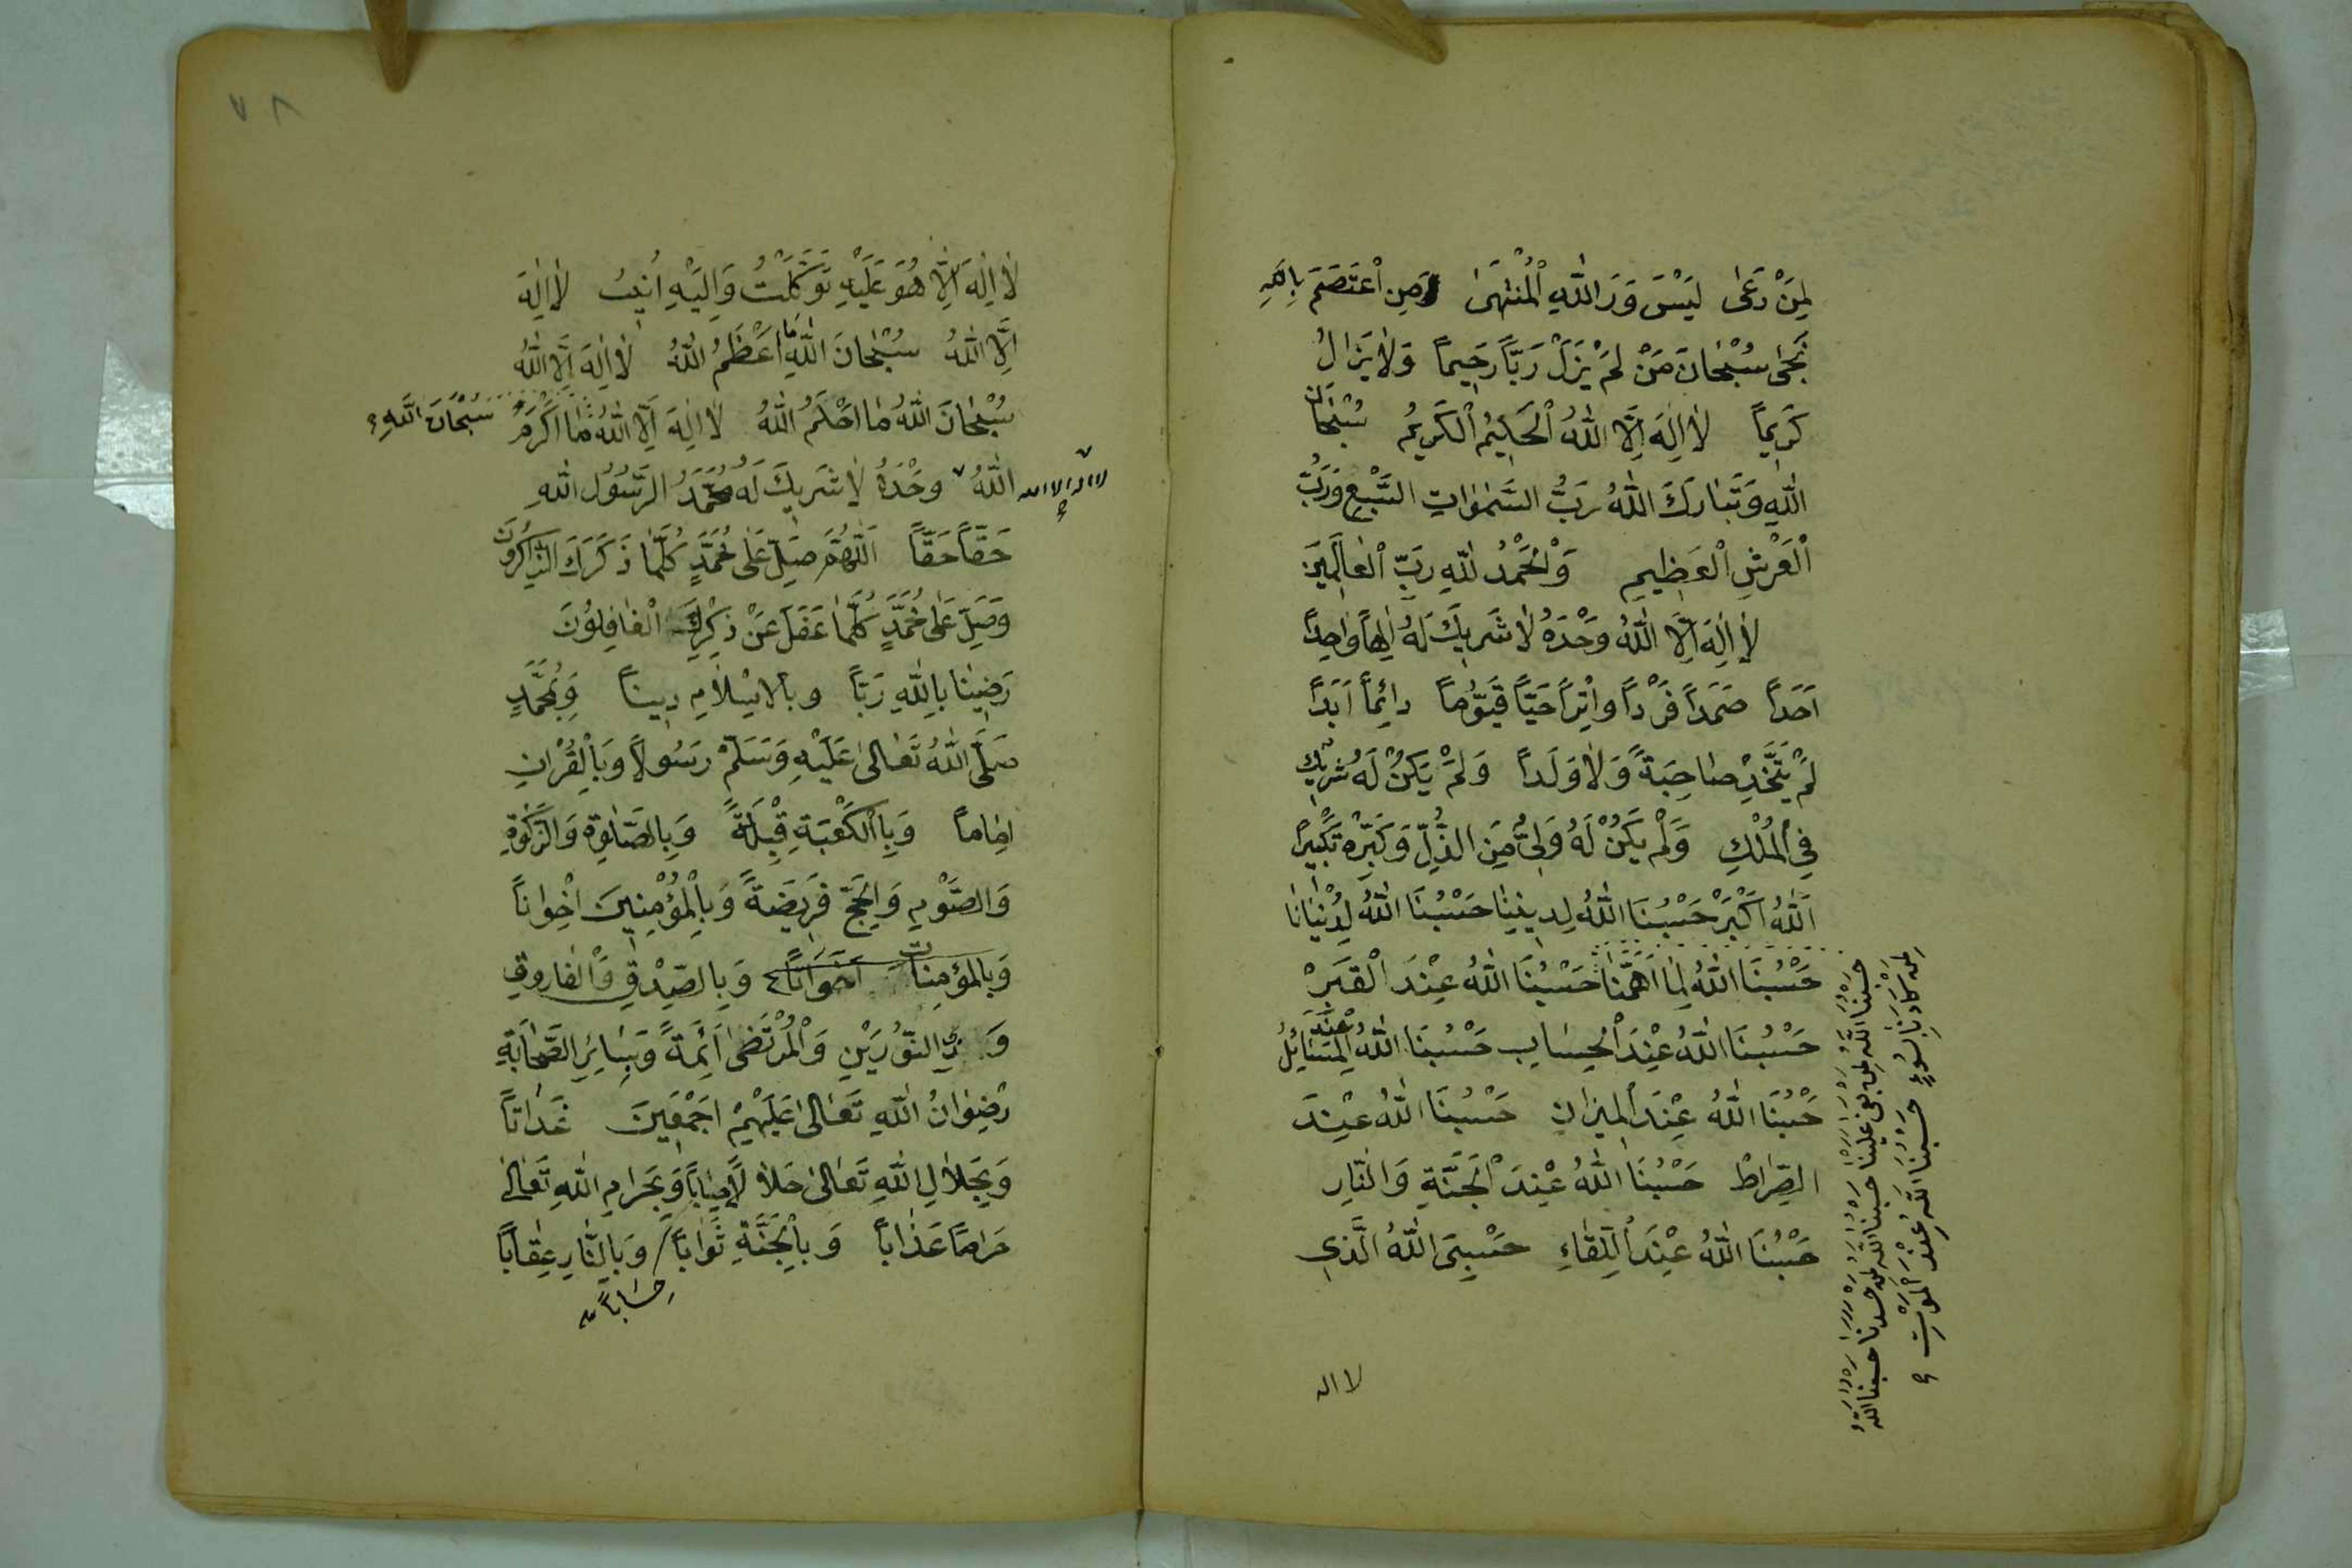 لِمَنْ دَعٰى لَيْسَ وَرَاللّٰهِ الْمُنْتَهٰى وَمَنِ اعْتَصَمَ بِاللّٰهِ
نَجٰى سُبْحَانَ مَنْ لَمْ يَزَلْ رَبًّا رَحِيماً وَلَا يَزَالُ
كَرِيماً لَا اِلٰهَ اِلَّا اللّٰهُ الْحَكِيمُ الْكَرِيمُ سُبْحَانَ
اللّٰهِ وَتَبَارَكَ اللّٰهُ رَبُّ السَّمٰوَاتِ السَّبْعِ وَرَبُّ
الْعَرْشِ الْعَظِيمِ وَالْحَمْدُ لِلّٰهِ رَبِّ الْعَالَمِينَ
لَا اِلٰهَ اِلَّا اللّٰهُ وَحْدَهُ لَا شَرِيكَ لَهُ اِلٰهاً وَاحِداً
اَحَداً صَمَداً فَرْداً وِاتْراً حَيًّا قَيُّوماً دَائِماً اَبَداً
لَمْ يَتَّخِذْ صَاحِبَةً وَلَا وَلَداً وَلَمْ يَكُنْ لَهُ شَرِيكٌ
فِي الْمُلْكِ وَلَمْ يَكُنْ لَهُ وَلِيٌّ مِنَ الذُّلِّ وَكَبِّرْهُ تَكْبِيراً
اَللّٰهُ اَكْبَرْ حَسْبُنَا اللّٰهُ لِدِينِنَا حَسْبُنَا اللّٰهُ لِدُنْيَانَا
حَسْبُنَا اللّٰهُ لِمَا اَهَمَّنَا حَسْبُنَا اللّٰهُ عِنْدَ الْقَبْرِ
حَسْبُنَا اللّٰهُ عِنْدَ الْحِسَابِ حَسْبُنَا اللّٰهُ عِنْدَ الْمَسَائِلُ
حَسْبُنَا اللّٰهُ عِنْدَ الْمِيزَانِ حَسْبُنَا اللّٰهُ عِنْدَ
الصِّرَاطْ حَسْبُنَا اللّٰهُ عِنْدَ الْجَنَّةِ وَالنَّارِ
حَسْبُنَا اللّٰهُ عِنْدَ الِلّقَاءِ حَسْبِيَ اللّٰهُ الَّذِي
حَسْبُنَا اللّٰهُ لِمَنْ بَغٰى عَلَيْنَا حَسْبُنَا اللّٰهُ لِمَنْ حَسَدَنَا حَسْبُنَا اللّٰهُ
لِمَنْ كَادَنَا بِسُوءٍ حَسْبُنَا اللّٰهُ عِنْدَ الْمَوْتِ
لا اله
٧٨
لَا اِلٰهَ اِلَّا هُوَ عَلَيْهِ تَوَكَّلْتُ وَاِلَيْهِ اُنِيبُ لَا اِلٰهَ
اِلَّا اللّٰهُ سُبْحَانَ اللّٰهِ مَا اَعْظَمُ اللّٰهُ لَا اِلٰهَ اِلَّا اللّٰهُ
سُبْحَانَ اللّٰهُ مَا اَحْلَمُ اللّٰهُ لَا اِلٰهَ اِلَّا اللّٰهُ مَا اَكْرَمُ سُبْحَانَ اللّٰهِ
اللّٰهُ وَحْدَهُ لَا شَرِيكَ لَهُ مُحَمَّدُ الرَّسُولُ اللّٰهِ
لا اله الا الله
حَقًّا حَقًّا اَللّٰهُمَّ صَلِّ عَلٰى مُحَمَّدٍ كُلَّمَا ذَكَرَكَ الذَّاكِرُونَ
وَصَلِّ عَلٰى مُحَمَّدٍ كُلَّمَا غَفَلَ عَنْ ذِكْرِكَ الْغَافِلُونَ
رَضِينَا بِاللّٰهِ رَبًّا وَبِالْاِسْلَامِ دِيناً وَبِمُحَمَّدٍ
صَلَّى اللّٰهُ تَعَالٰى عَلَيْهِ وَسَلَّمْ رَسُولاً وَبِالْقُرْاٰنِ
اِمَاماً وَبِالْكَعْبَةِ قِبْلَةً وَبِالصَّلٰوةِ وَالزَّكٰوةِ
وَالصَّوْمِ وَالْحَجِّ فَرِيضَةً وَبِالْمُؤْمِنِينَ اِخْوَاناً
وَبِالْمُؤْمِنَاتِ اَخَوَاتاً وَبِالصِّدِيقِ وَالْفَارُوقِ
وَذِي النُّورَيْنِ وَالْمُرْتَضٰى اَئِمَّةً وَبِسَائِرِ الصَّحَابَةِ
رِضْوَانُ اللّٰهِ تَعَالٰى عَلَيْهِمْ اَجْمَعِينَ
وَبِحَلَالِ اللّٰهِ تَعَالٰى حَلَالاً وَبِحَرَامِ اللّٰهِ تَعَالٰى
حَرَاماً عَذَاباً وَبِالْجَنَّةِ ثَوَاباً وَبِالنَّارِ عِقَاباً
حِسَاباً